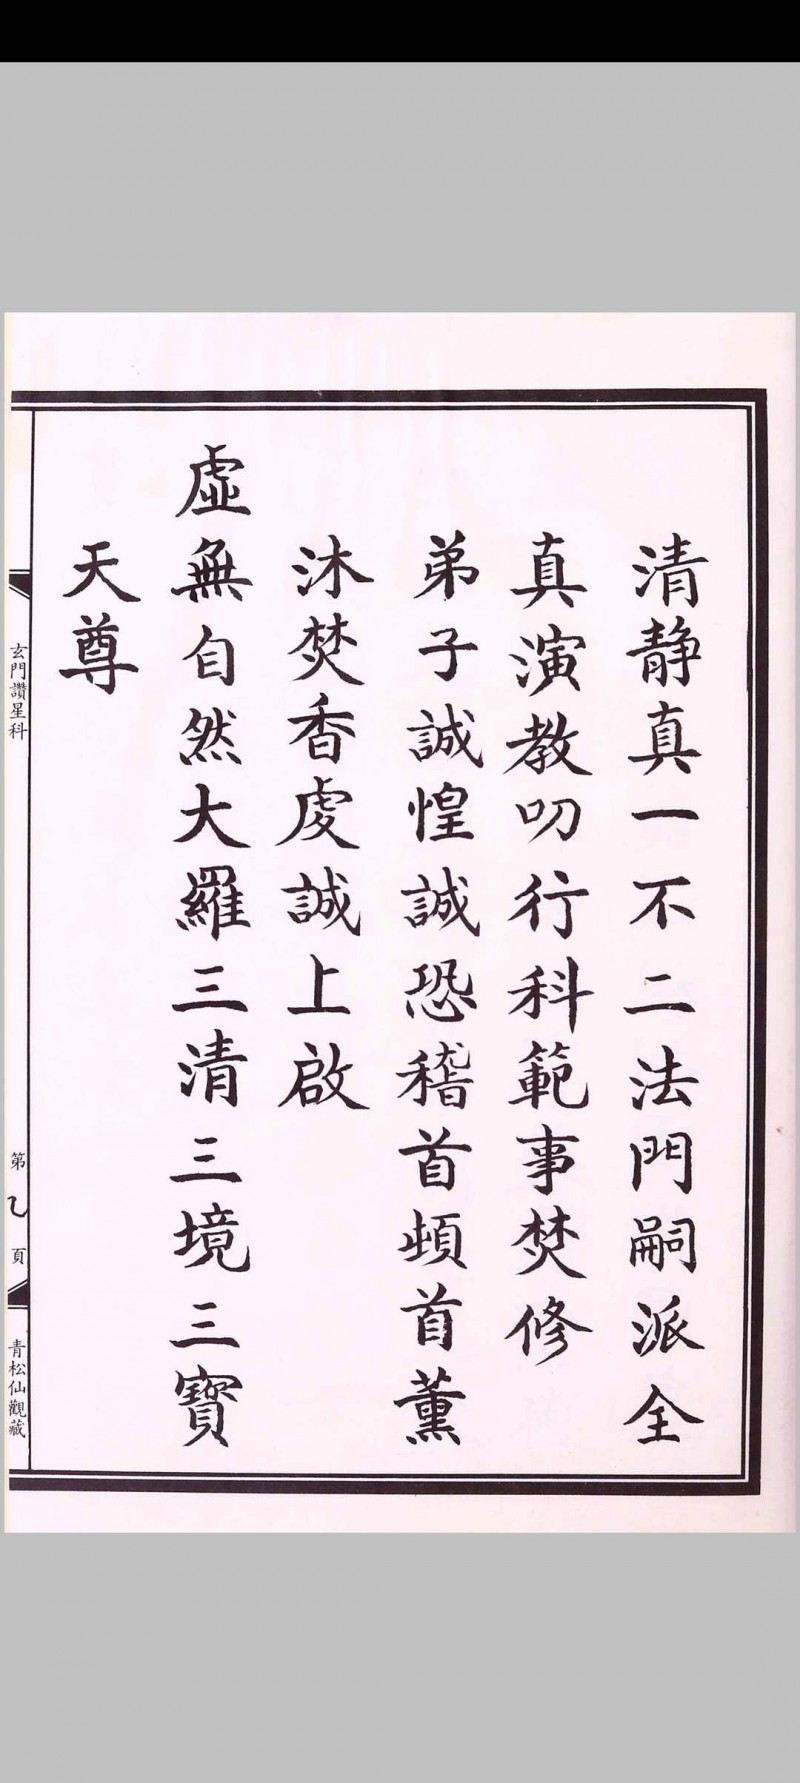 清静真一不二法門嗣派全
真演教叨行科範事焚修
弟子誠惶誠恐稽首頓首薰
沐焚香虔誠上啟
虛無自然大羅三清三境三寶
天尊
玄門讚星科
第
頁
青松仙觀藏